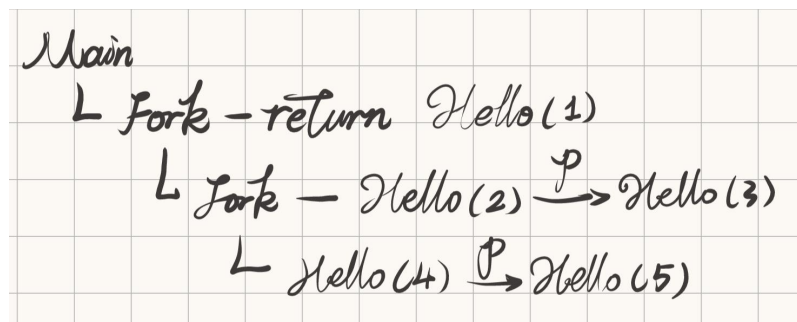 Main
└ Fork - return Hello(1)
└ Fork — Hello(2) P→ Hello(3)
└ Hello(4) P→ Hello(5)